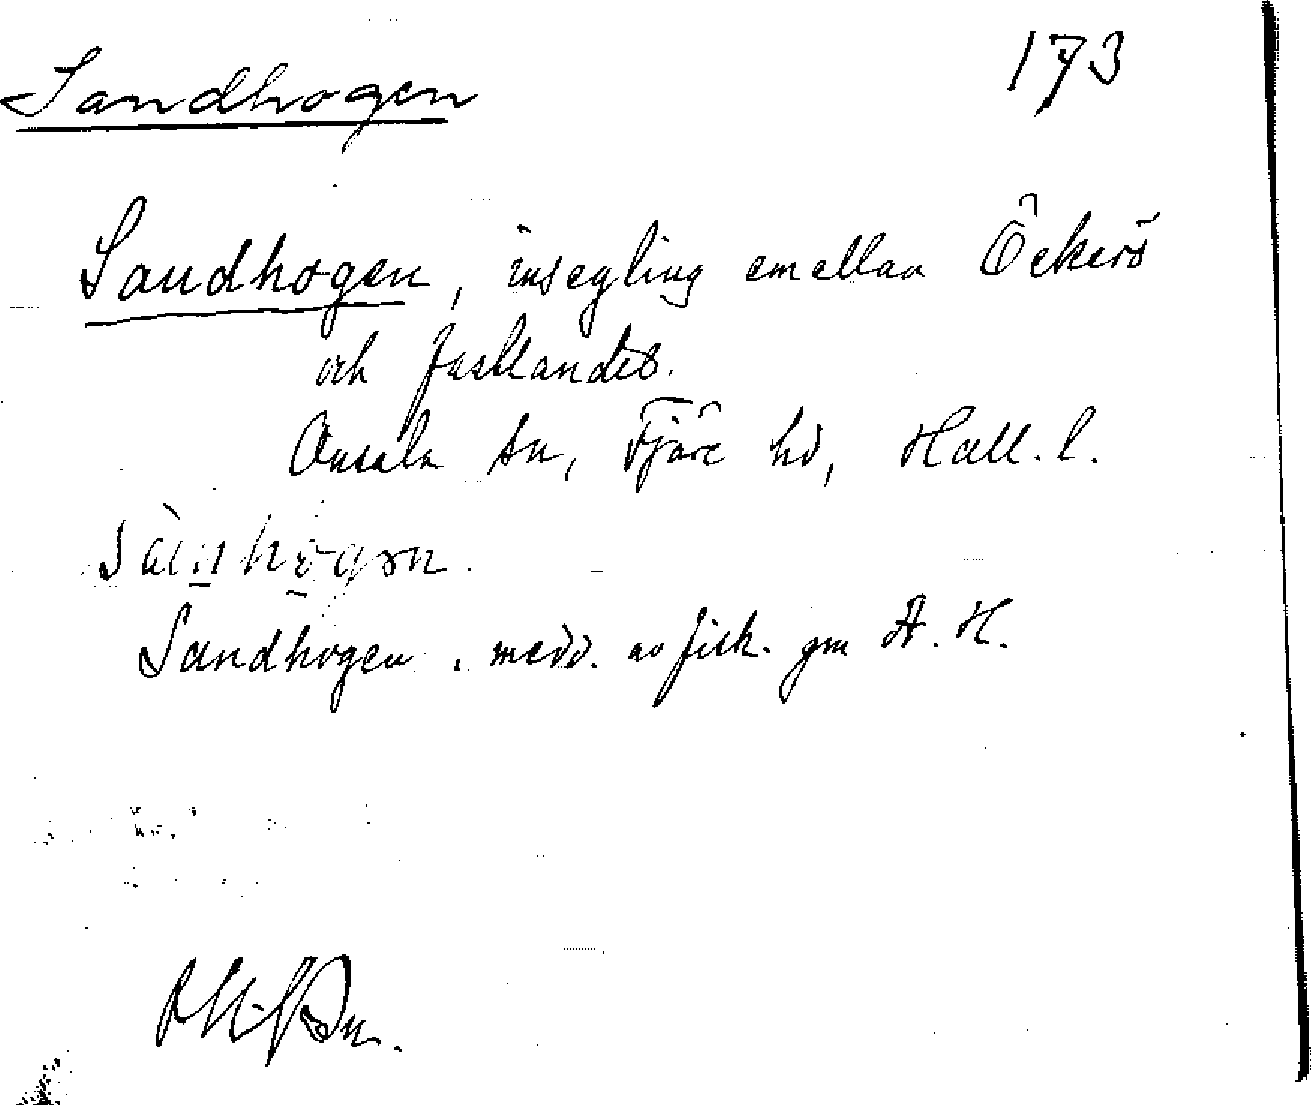 Sandhogen
173
Sandhogen, insegling emellan Öckerö
och fastlandet.
Onsala sn, Fjäre hd, Hall. l.
Sandhogen, medd. av fisk. gm A. H.